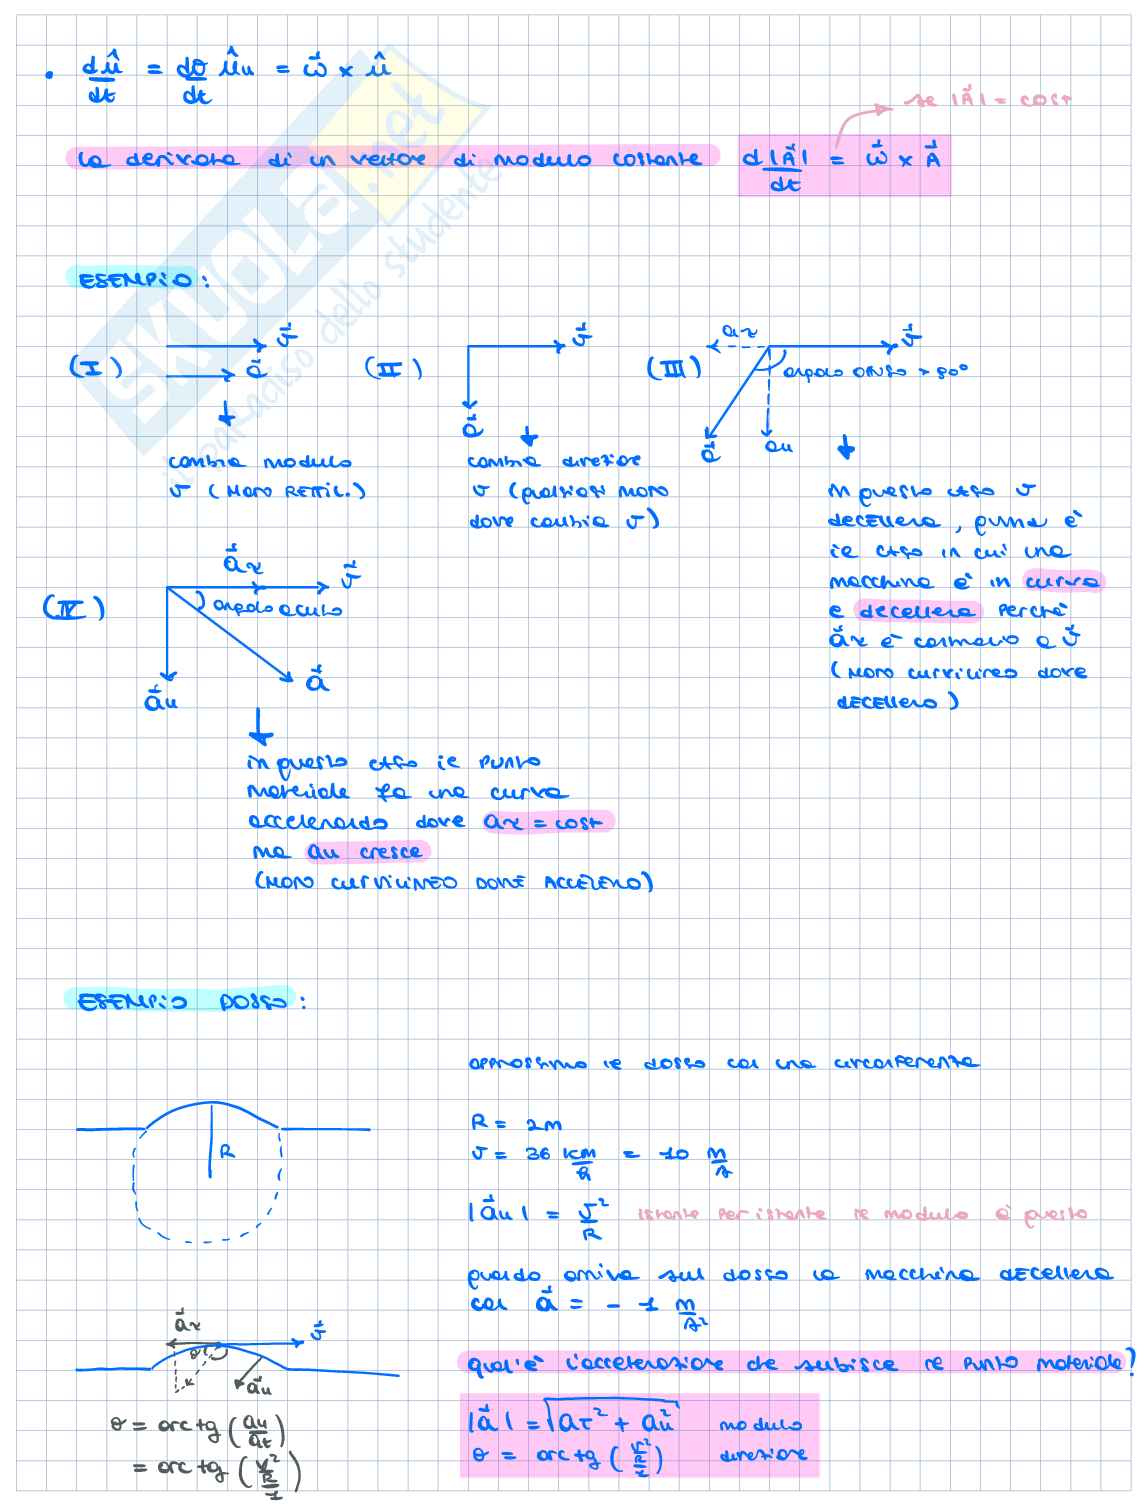 • dû/dt = dθ/dt ûn = ω⃗ × û
se |A⃗| = cost
la derivata di un vettore di modulo costante d|A⃗|/dt = ω⃗ × A⃗
ESEMPIO:
(I) v⃗ a⃗
cambia modulo
v (MOTO RETTIL.)
(II) v⃗ a⃗
cambia direzione
v (qualsiasi moto
dove cambia v)
(III) aτ v⃗ angolo ottuso > 90° a⃗ an
in questo caso v
decellera, quina è
il caso in cui una
macchina è in curva
e decellera perchè
a⃗τ è contrario a v⃗
(moto curvilineo dove
decellero)
(IV) a⃗τ v⃗ angolo acuto a⃗n a⃗
in questo caso il punto
materiale fa una curva
accelerando dove aτ = cost
ma an cresce
(MOTO CURVILINEO DOVE ACCELERO)
ESEMPIO DOSSO:
approssimo il dosso con una circonferenza
R
R = 2m
v = 36 km/h = 10 m/s
|a⃗n| = v²/R istante per istante il modulo è questo
quando arriva sul dosso la macchina decellera
con a⃗ = - 1 m/s²
a⃗τ v⃗ θ a⃗n
qual'è l'accelerazione che subisce il punto materiale?
|a⃗| = √(aτ² + an²) modulo
θ = arctg (v²/R/1) direzione
θ = arctg (an/aτ)
= arctg (v²/R/1)
SKUOLA.net
il paradiso dello studente